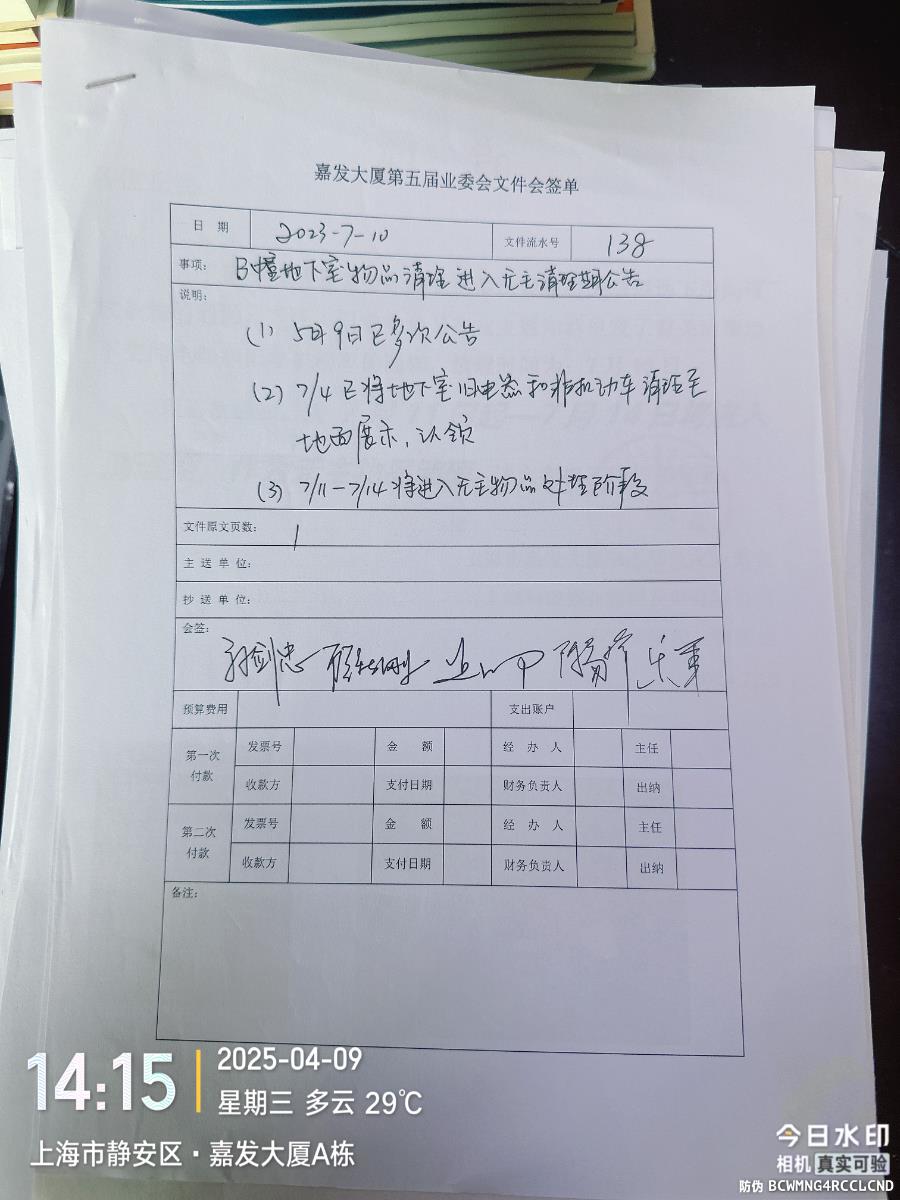 嘉发大厦第五届业委会文件会签单
日 期 2023-7-10 文件流水号 138
事项: B幢地下室物品清理进入无主清理期公告
说明:
(1) 5月9日已多次公告
(2) 7/4已将地下室旧电器和非机动车清理至
地面展示,认领
(3) 7/11-7/14将进入无主物品处理阶段
文件原文页数: 1
主 送 单 位:
抄 送 单 位:
会签:
预算费用 支出账户
第一次付款 发票号 金 额 经 办 人 主任
收款方 支付日期 财务负责人 出纳
第二次付款 发票号 金 额 经 办 人 主任
收款方 支付日期 财务负责人 出纳
备注:
14:15
2025-04-09
星期三 多云 29℃
上海市静安区·嘉发大厦A栋
今日水印
相机 真实可验
防伪 BCWMNG4RCCLCND